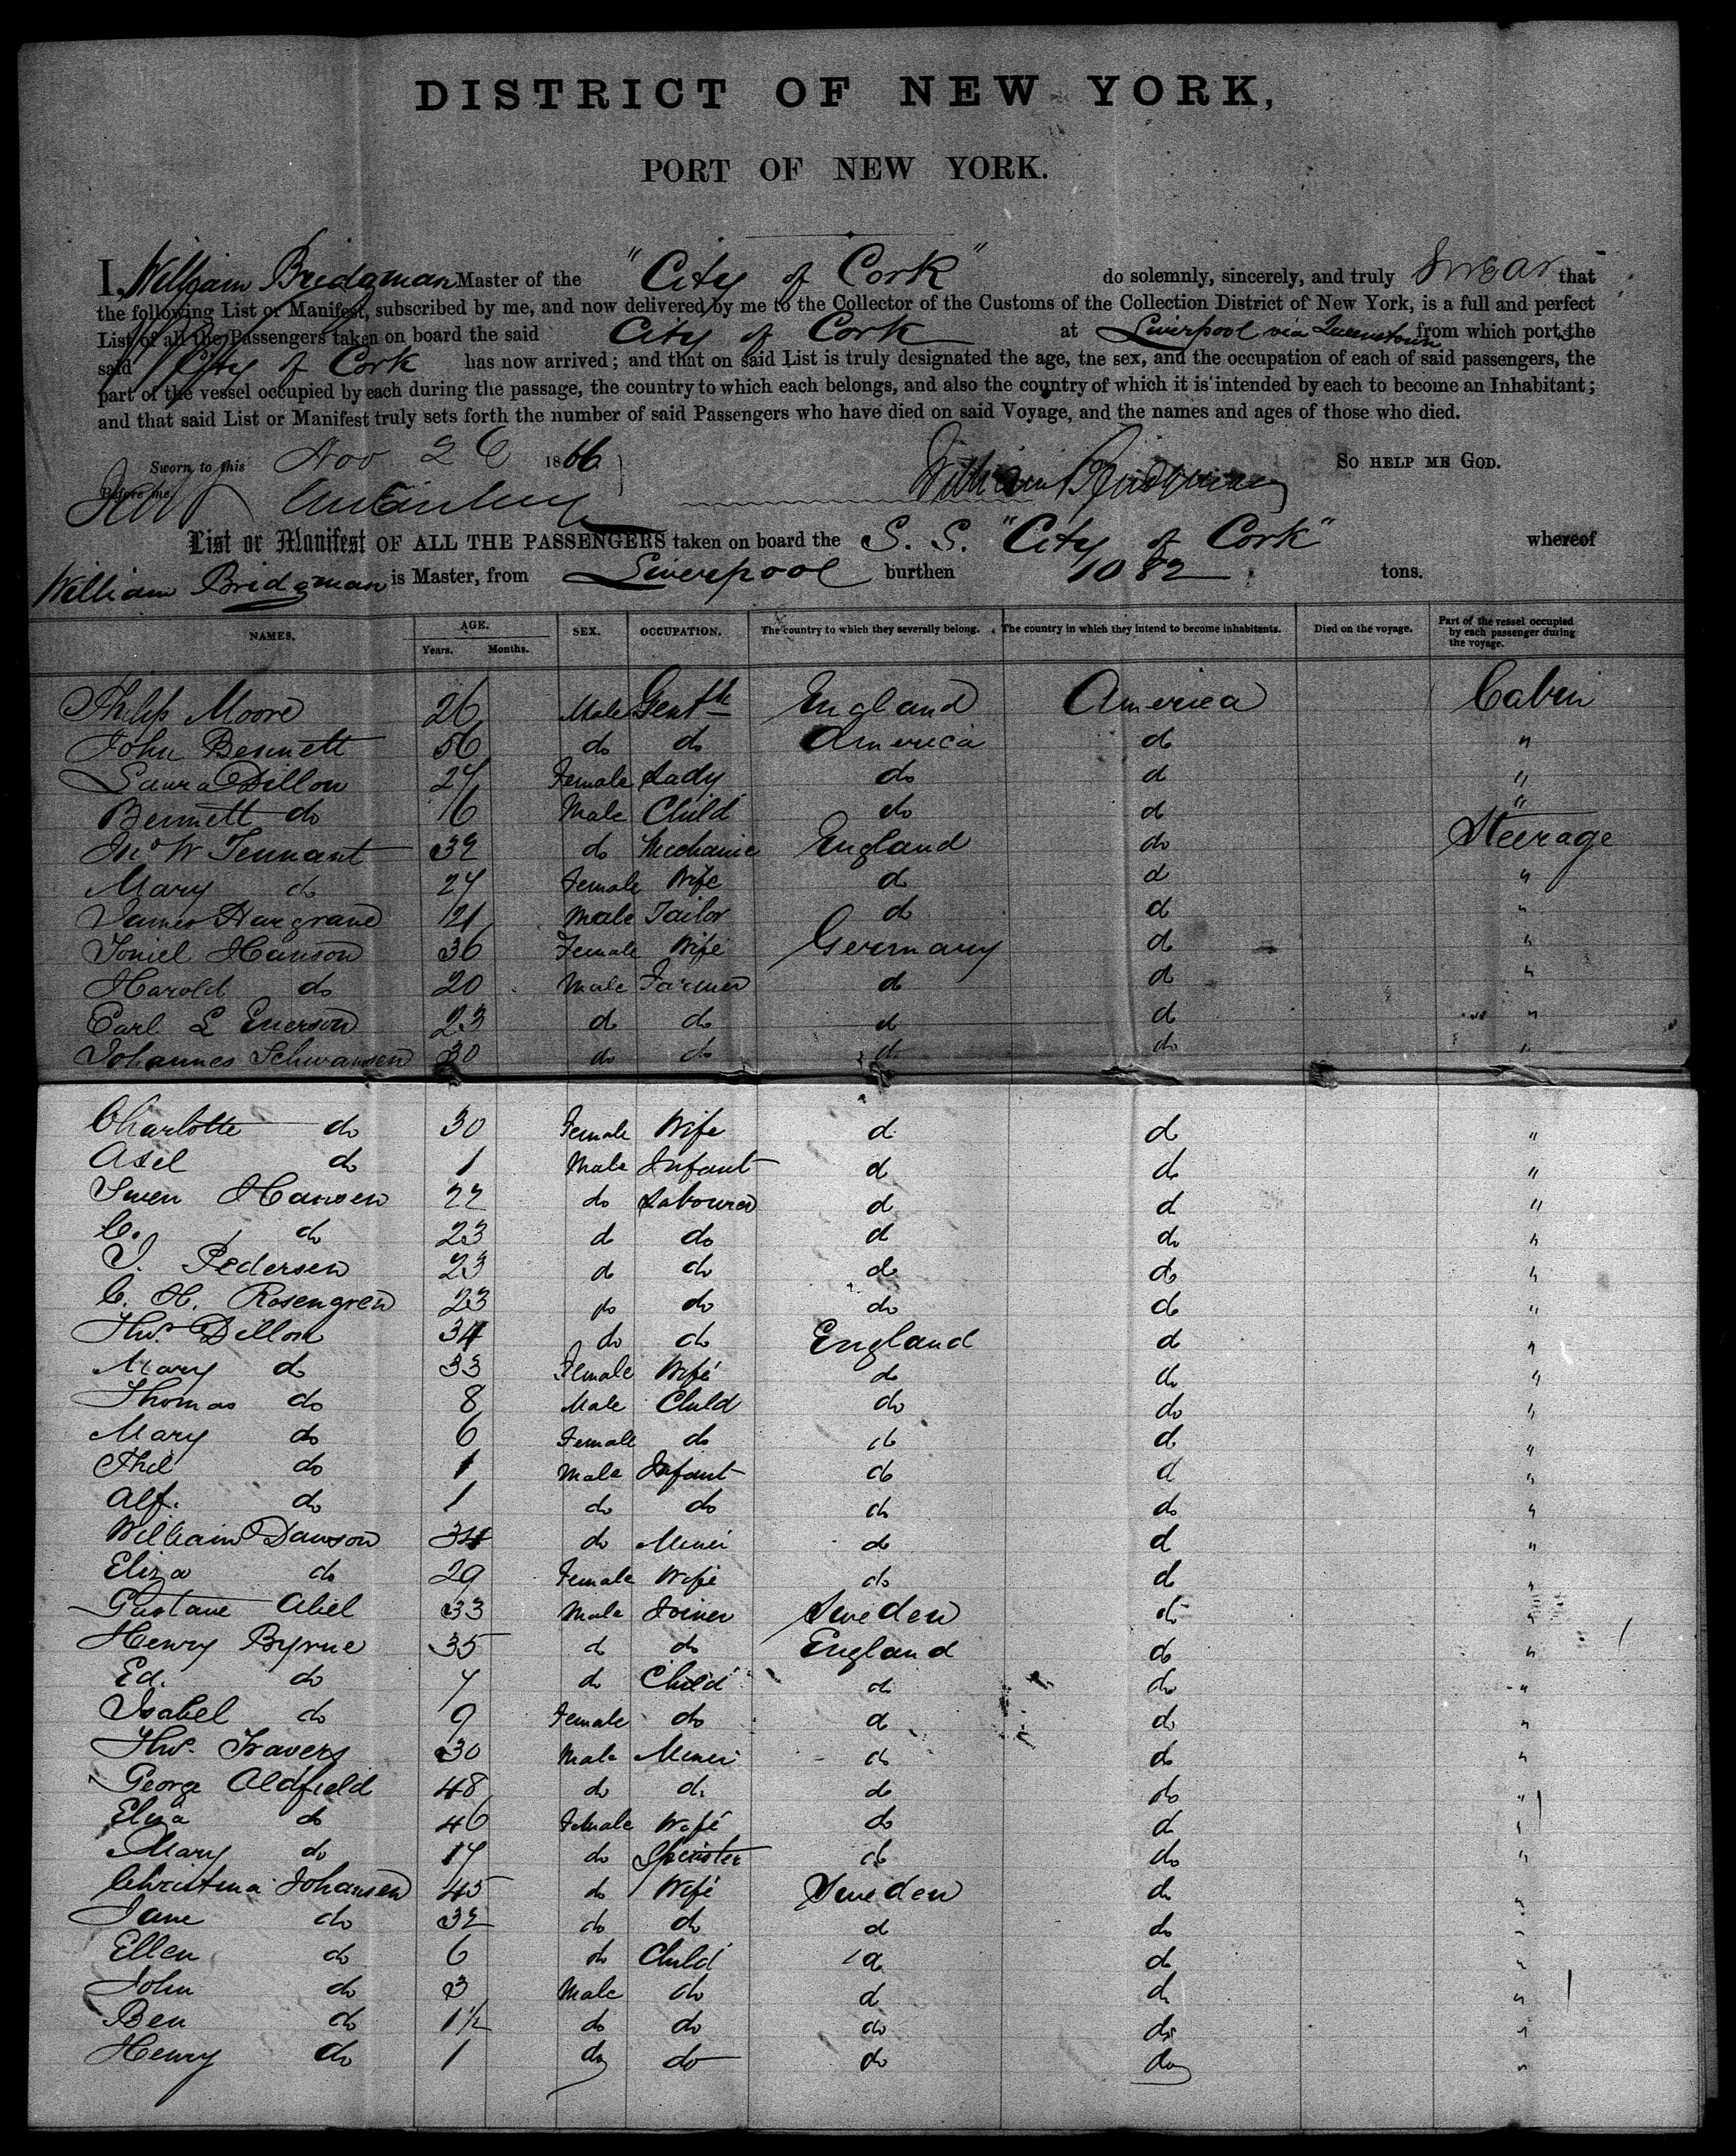 DISTRICT OF NEW YORK,
PORT OF NEW YORK.
I, William Bridgman Master of the "City of Cork" do solemnly, sincerely, and truly Swear that
the following List or Manifest, subscribed by me, and now delivered by me to the Collector of the Customs of the Collection District of New York, is a full and perfect
List of all the Passengers taken on board the said City of Cork at Liverpool via Queenstown from which port the
said City of Cork has now arrived; and that on said List is truly designated the age, the sex, and the occupation of each of said passengers, the
part of the vessel occupied by each during the passage, the country to which each belongs, and also the country of which it is intended by each to become an Inhabitant;
and that said List or Manifest truly sets forth the number of said Passengers who have died on said Voyage, and the names and ages of those who died.
Sworn to this Nov 26 1866 William Bridgman SO HELP ME GOD.
Before me,
List or Manifest OF ALL THE PASSENGERS taken on board the S. S. "City of Cork" whereof
William Bridgman is Master, from Liverpool burthen 1082 tons.
NAMES. AGE. Years. Months. SEX. OCCUPATION. The country to which they severally belong. The country in which they intend to become inhabitants. Died on the voyage. Part of the vessel occupied by each passenger during the voyage.
Philip Moore 26 Male England America Cabin
John Bennett 56 do do America do "
Laura Dillon 27 Female Lady do do "
Bennett do 6 Male Child do do "
Jno W Tennant 32 do Mechanic England do Steerage
Mary do 27 Female Wife do do "
James Hargrave 21 Male Tailor do do "
Hanson 36 Female Wife Germany do "
Harold do 20 Male Farmer do do "
Carl L Enerson 23 do do do do "
Johannes Schwansen 30 do do do do "
Charlotte do 30 Female Wife do do "
Axel do 1 Male Infant do do "
Swen Hansen 22 do Labourer do do "
C. do 23 do do do do "
J. Pedersen 23 do do do do "
C. H. Rosengren 23 do do do do "
Thos. Dillon 34 do do England do "
Mary do 33 Female Wife do do "
Thomas do 8 Male Child do do "
Mary do 6 Female do do do "
Phil do 1 Male Infant do do "
Alf. do 1 do do do do "
William Dawson 34 do Miner do do "
Eliza do 29 Female Wife do do "
Gustave Abiel 33 Male Joiner Sweden do "
Henry Byrne 35 do do England do "
Ed. do 7 do Child do do "
Isabel do 9 Female do do do "
Thos. Travers 30 Male Miner do do "
George Oldfield 48 do do do do "
Eliza do 46 Female Wife do do "
Mary do 17 do Spinster do do "
Christina Johansen 45 do Wife Sweden do "
Jane do 32 do do do do "
Ellen do 6 do Child do do "
John do 3 Male do do do "
Ben do 1½ do do do do "
Henry do 1 do do do do "